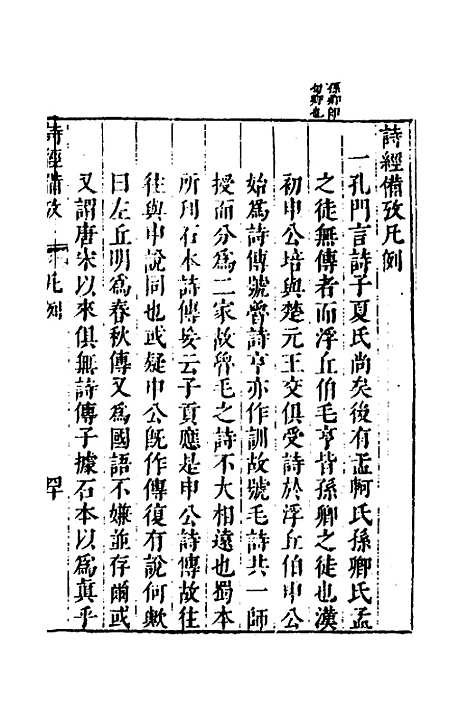 孫卿即
荀卿也
詩經備攷凡例
一孔門言詩子夏氏尚矣後有孟軻氏孫卿氏孟
之徒無傳者而浮丘伯毛亨皆孫卿之徒也漢
初申公培與楚元王交俱受詩於浮丘伯申公
始爲詩傳號魯詩亨亦作訓故號毛詩共一師
授而分爲二家故魯毛之詩不大相遠也蜀本
所刋石本詩傳妄云子貢應是申公詩傳故往
往與申說同也或疑申公旣作傳復有說何歟
曰左丘明爲春秋傳又爲國語不嫌並存爾或
又謂唐宋以來俱無詩傳子據石本以爲真乎
詩經備攷
凡例